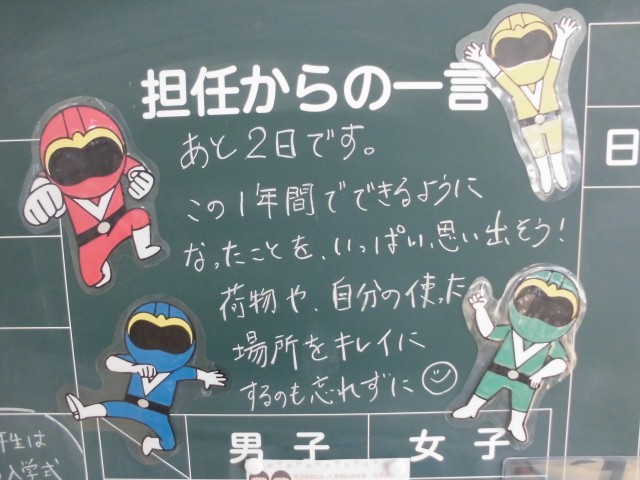 担任からの一言
あと2日です。
この1年間でできるように
なったことを、いっぱい思い出そう!
荷物や、自分の使った
場所をキレイに
するのも忘れずに
日
男子
女子
生は
入学式